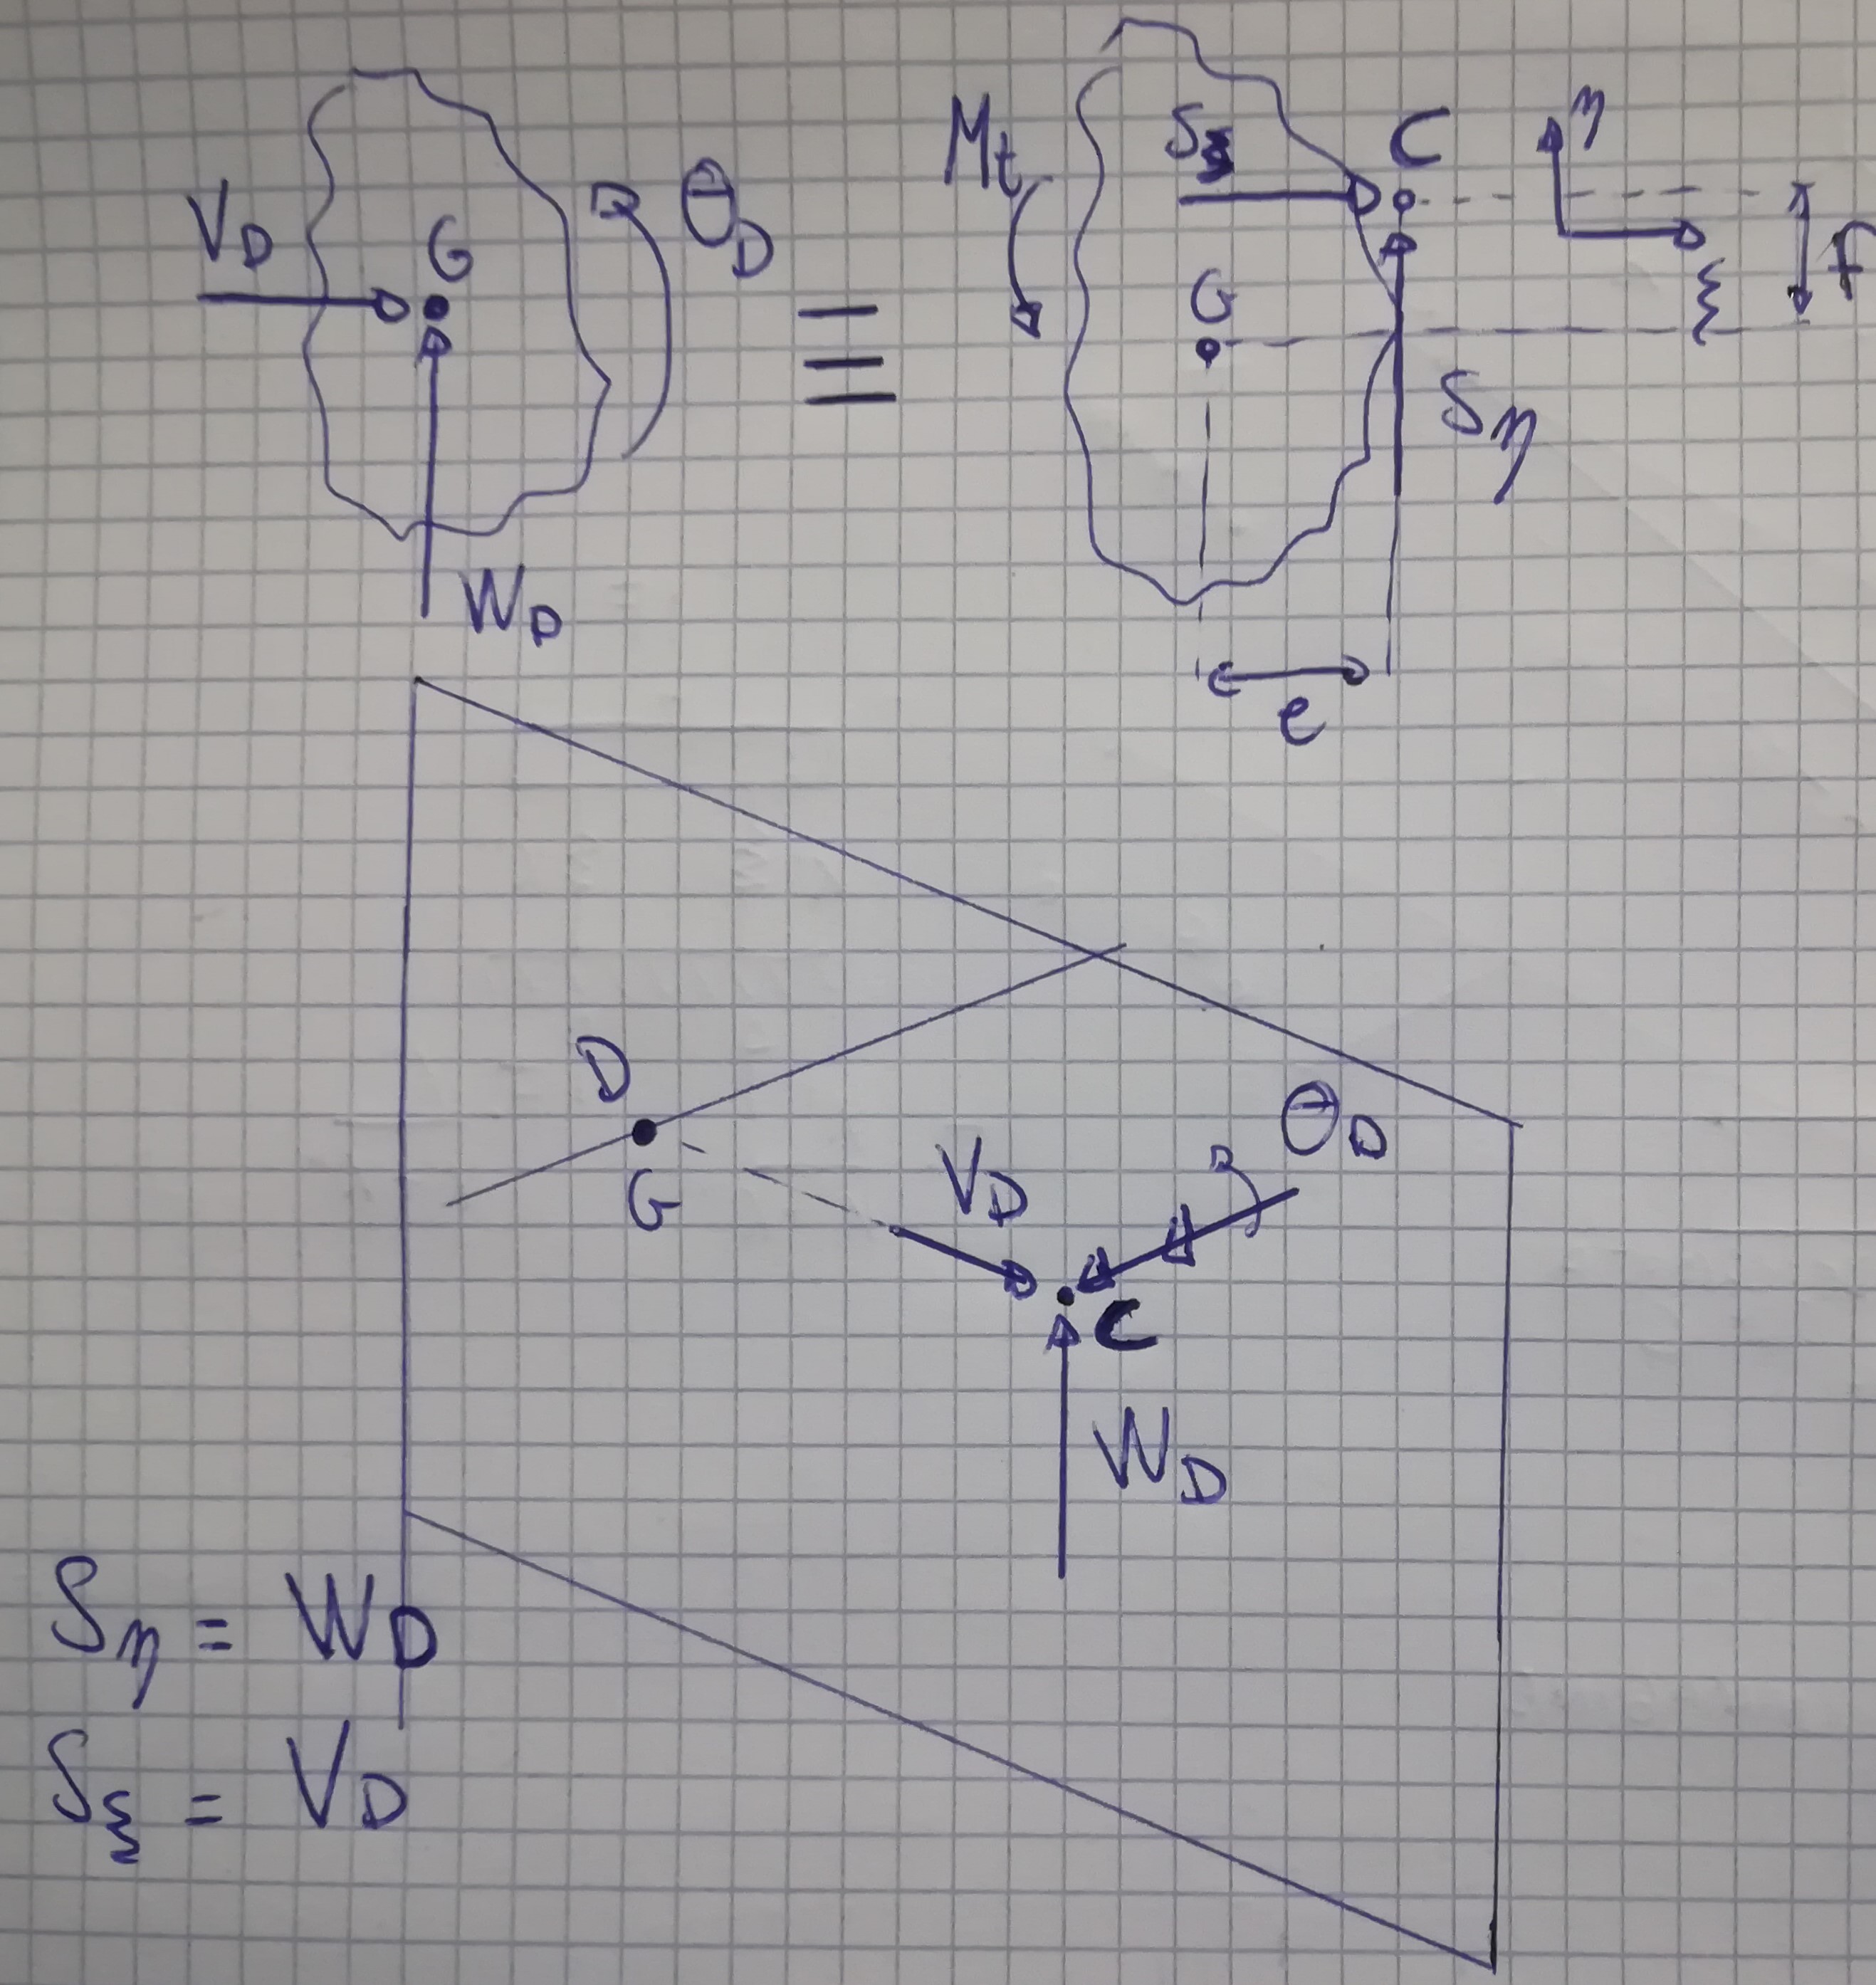 V_D
G
W_D
Θ_D
≡
M_t
S_ξ
C
G
S_η
η
ξ
f
e
D
G
V_D
Θ_D
C
W_D
S_η = W_D
S_ξ = V_D